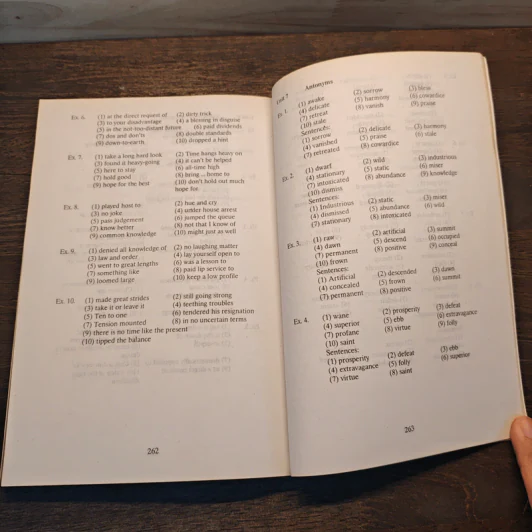 Ex. 6. (1) at the direct request of (2) dirty trick
(3) to your disadvantage (4) a blessing in disguise
(5) in the not-too-distant future (6) paid dividends
(7) dos and don'ts (8) double standards
(9) down-to-earth (10) dropped a hint
Ex. 7. (1) take a long hard look (2) Time hangs heavy on
(3) found it heavy-going (4) it can't be helped
(5) here to stay (6) all-time high
(7) hold good (8) bring ... home to
(9) hope for the best (10) don't hold out much
hope for
Ex. 8. (1) played host to (2) hue and cry
(3) no joke (4) under house arrest
(5) pass judgement (6) jumped the queue
(7) know better (8) not that I know of
(9) common knowledge (10) might just as well
Ex. 9. (1) denied all knowledge of (2) no laughing matter
(3) law and order (4) lay yourself open to
(5) went to great lengths (6) was a lesson to
(7) something like (8) paid lip service to
(9) loomed large (10) keep a low profile
Ex. 10. (1) made great strides (2) still going strong
(3) take it or leave it (4) teething troubles
(5) Ten to one (6) tendered his resignation
(7) Tension mounted (8) in no uncertain terms
(9) there is no time like the present
(10) tipped the balance
262
Unit 7 Antonyms
Ex. 1. (1) awake (2) sorrow (3) bless
(4) delicate (5) harmony (6) cowardice
(7) retreat (8) vanish (9) praise
(10) stale
Sentences:
(1) sorrow (2) delicate (3) harmony
(4) vanished (5) praise (6) stale
(7) retreated (8) cowardice
Ex. 2. (1) dwarf (2) wild (3) industrious
(4) stationary (5) static (6) miser
(7) intoxicated (8) abundance (9) knowledge
(10) dismiss
Sentences:
(1) Industrious (2) static (3) miser
(4) dismissed (5) abundance (6) wild
(7) stationary (8) intoxicated
Ex. 3. (1) raw (2) artificial (3) summit
(4) dawn (5) descend (6) occupied
(7) permanent (8) positive (9) conceal
(10) frown
Sentences:
(1) Artificial (2) descended (3) dawn
(4) concealed (5) frown (6) summit
(7) permanent (8) positive
Ex. 4. (1) wane (2) prosperity (3) defeat
(4) superior (5) ebb (6) extravagance
(7) profane (8) virtue (9) folly
(10) saint
Sentences:
(1) prosperity (2) defeat (3) ebb
(4) extravagance (5) folly (6) superior
(7) virtue (8) saint
263